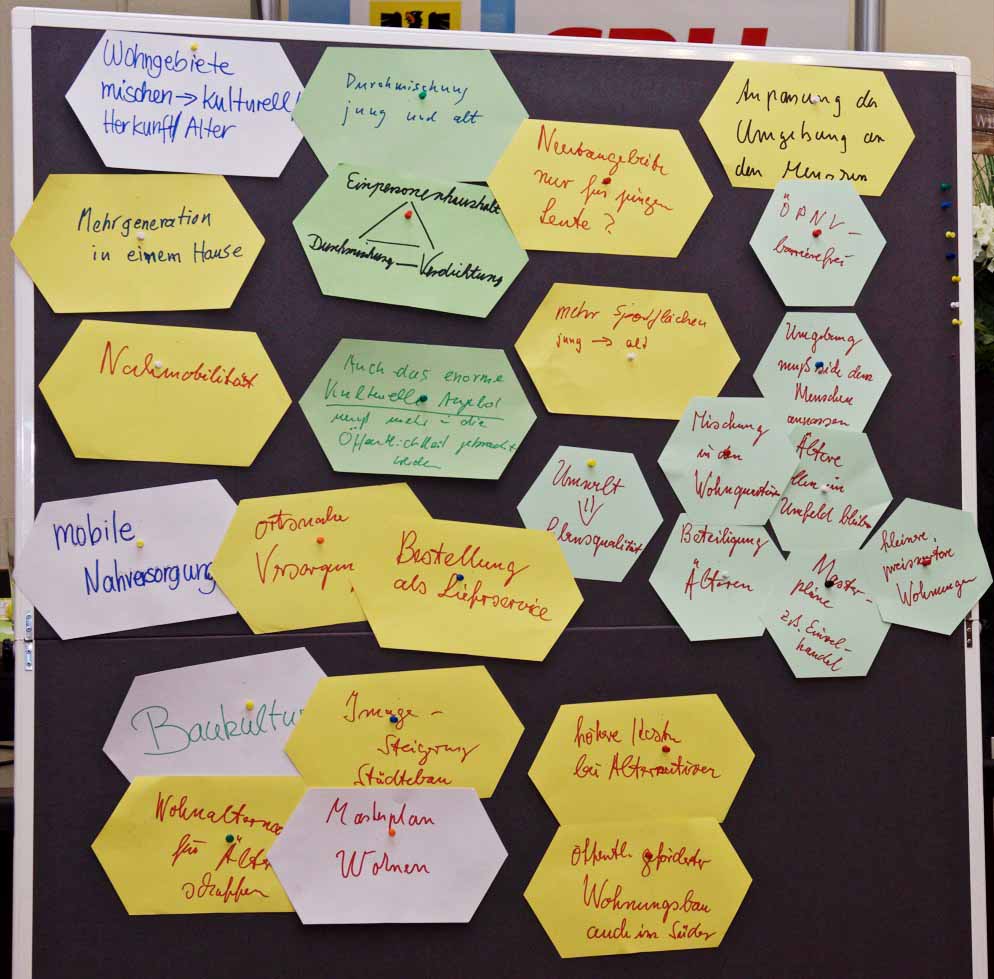 CDU
Wohngebiete
mischen → kulturell/
Herkunft/Alter
Durchmischung
jung und alt
Neubaugebiete
nur für jungen
Leute?
Anpassung der
Umgebung an
den Menschen
Mehrgeneration
in einem Hause
Einpersonenhaushalt
Durchmischung — Verdichtung
ÖPNV –
barrierefrei
Nahmobilität
Auch das enorme
kulturelle Angebot
muß mehr in die
Öffentlichkeit gebracht
werden
mehr Sportflächen
jung → alt
Umgebung
muß sich dem
Menschen
anpassen
Mischung
in den
Wohnquartier
Ältere
im
Umfeld bleiben
Umwelt
⇓
Lebensqualität
mobile
Nahversorgung
ortsnahe
Versorgun
Bestellung
als Lieferservice
Beteiligung
Älteren
Master-
pläne
z.B. Einzel-
handel
kleinere,
preiswertere
Wohnungen
Baukultur
Image-
Steigerung
Städtebau
Wohnalterna
für Älte
schaffen
Masterplan
Wohnen
höhere Kosten
bei Alternativen
öffentl. geförderter
Wohnungsbau
auch im Süden